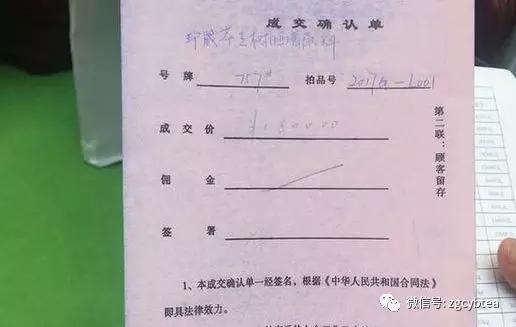 成交确认单
号牌 757# 拍品号 2017G-L001
成交价 ¥180000
佣金
签署
第二联：顾客留存
1、本成交确认单一经签名，根据《中华人民共和国合同法》
即具法律效力。
微信号: zgcybtea